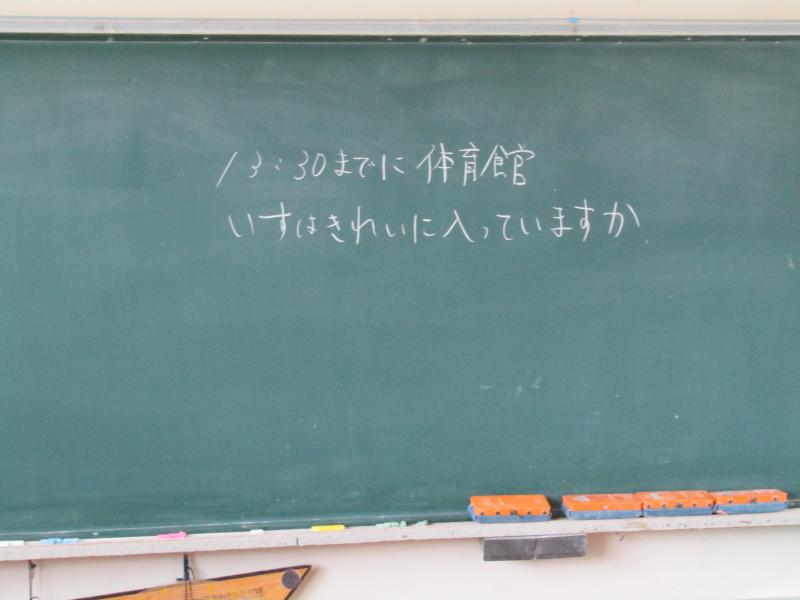 13:30までに体育館
いすはきれいに入っていますか